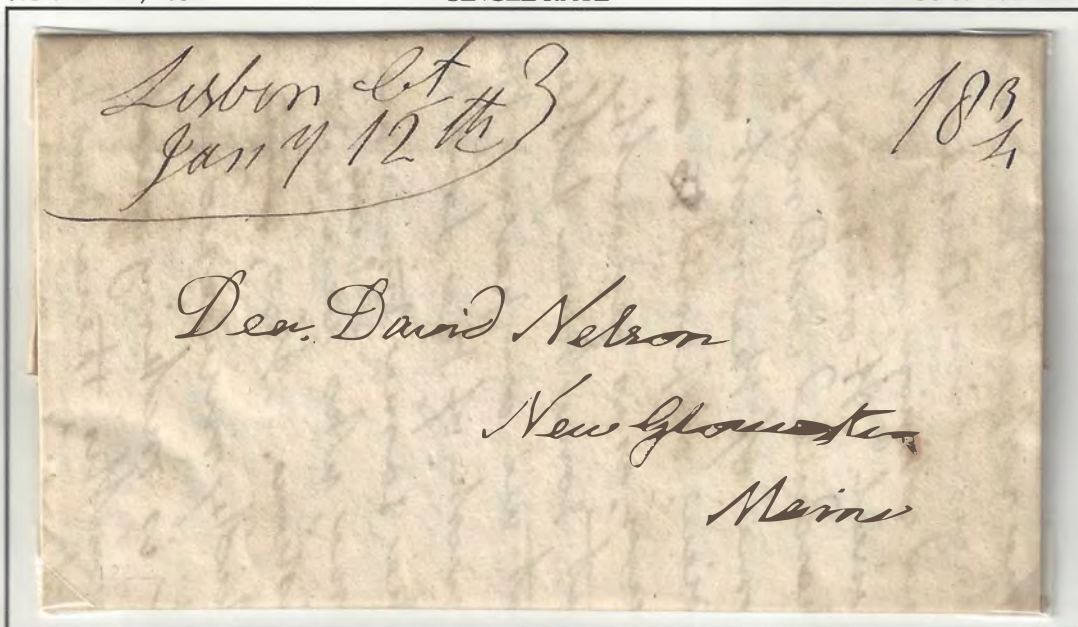 Lisbon Ct
Jany 12th
18 3/4
Dea. David Nelson
New Gloucester
Maine